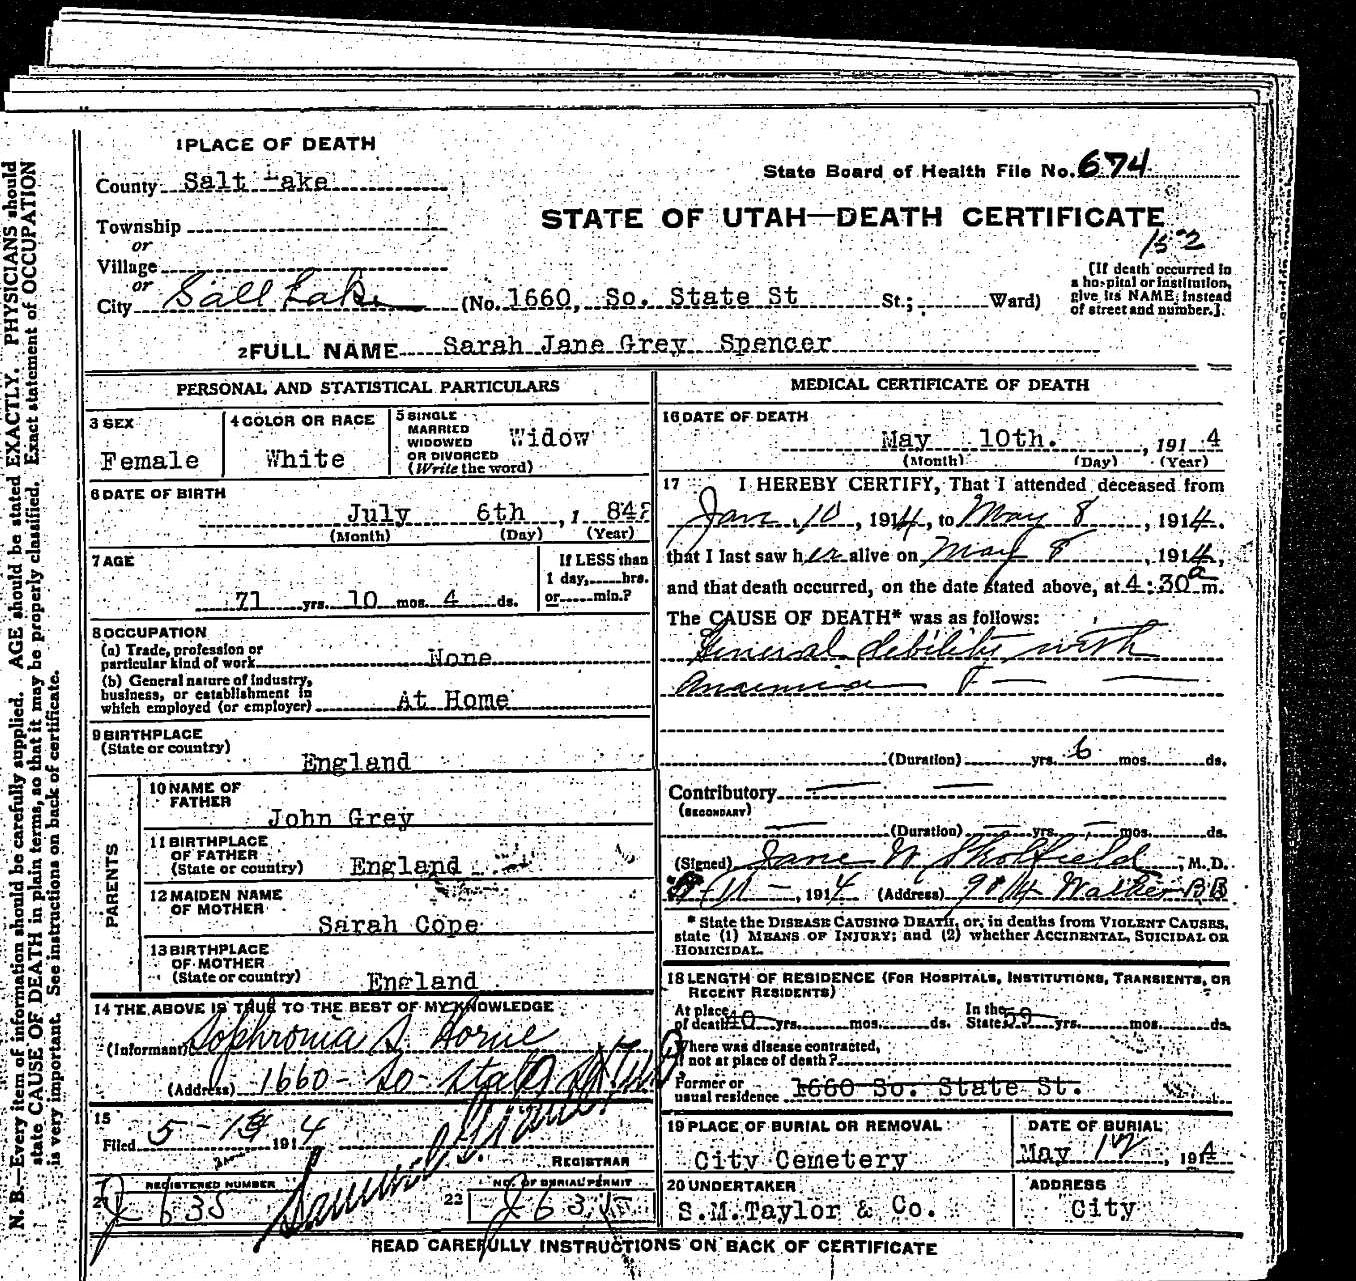 1 PLACE OF DEATH
County Salt Lake
State Board of Health File No. 674
STATE OF UTAH—DEATH CERTIFICATE
152
Township
or
Village
or
City Salt Lake (No. 1660, So. State St St.; Ward)
[If death occurred in
a hospital or institution,
give its NAME, instead
of street and number.]
2 FULL NAME Sarah Jane Grey Spencer
PERSONAL AND STATISTICAL PARTICULARS
3 SEX
Female
4 COLOR OR RACE
White
5 SINGLE
MARRIED
WIDOWED
OR DIVORCED
(Write the word)
Widow
6 DATE OF BIRTH
July 6th, 1 842
(Month) (Day) (Year)
7 AGE
71 yrs. 10 mos. 4 ds.
If LESS than
1 day, hrs.
or min.?
8 OCCUPATION
(a) Trade, profession or
particular kind of work None
(b) General nature of industry,
business, or establishment in
which employed (or employer) At Home
9 BIRTHPLACE
(State or country)
England
PARENTS
10 NAME OF
FATHER
John Grey
11 BIRTHPLACE
OF FATHER
(State or country) England
12 MAIDEN NAME
OF MOTHER
Sarah Cope
13 BIRTHPLACE
OF MOTHER
(State or country) England
14 THE ABOVE IS TRUE TO THE BEST OF MY KNOWLEDGE
(Informant) Sophronia S. Horne
(Address) 1660 - So - State St
15
Filed 5 - 1914
REGISTRAR
REGISTERED NUMBER
J 635
22 NO. OF BURIAL PERMIT
J 635
MEDICAL CERTIFICATE OF DEATH
16 DATE OF DEATH
May 10th. , 191 4
(Month) (Day) (Year)
17 I HEREBY CERTIFY, That I attended deceased from
Jan 10, 1914, to May 8, 1914.
that I last saw her alive on May 8, 1914,
and that death occurred, on the date stated above, at 4:30 a m.
The CAUSE OF DEATH* was as follows:
General debility with
Anaemia
(Duration) yrs. 6 mos. ds.
Contributory
(SECONDARY)
(Duration) yrs. mos. ds.
(Signed) Jane W. Skolfield, M. D.
5-11-, 1914 (Address) 904 Walker BB
* State the DISEASE CAUSING DEATH, or, in deaths from VIOLENT CAUSES,
state (1) MEANS OF INJURY; and (2) whether ACCIDENTAL, SUICIDAL OR
HOMICIDAL.
18 LENGTH OF RESIDENCE (FOR HOSPITALS, INSTITUTIONS, TRANSIENTS, OR
RECENT RESIDENTS)
At place
of death 40 yrs. mos. ds. In the
State 59 yrs. mos. ds.
Where was disease contracted,
if not at place of death?
Former or
usual residence 1660 So. State St.
19 PLACE OF BURIAL OR REMOVAL
City Cemetery
DATE OF BURIAL
May 12, 1914
20 UNDERTAKER
S.M.Taylor & Co.
ADDRESS
City
READ CAREFULLY INSTRUCTIONS ON BACK OF CERTIFICATE
N. B.—Every item of information should be carefully supplied. AGE should be stated EXACTLY. PHYSICIANS should
state CAUSE OF DEATH in plain terms, so that it may be properly classified. Exact statement of OCCUPATION
is very important. See instructions on back of certificate.